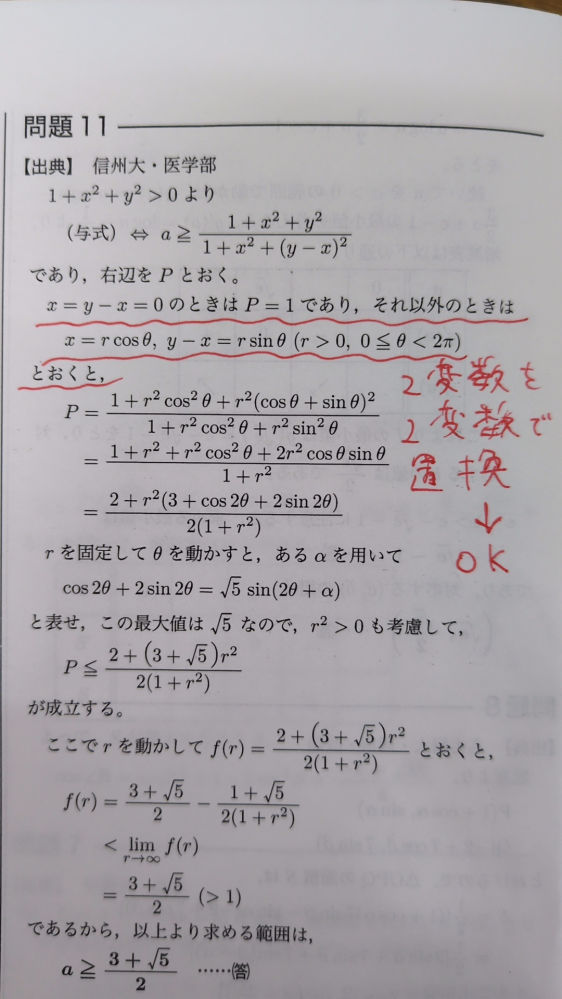 問題11
【出典】 信州大・医学部
1+x²+y²>0 より
(与式) ⇔ a≧(1+x²+y²)/(1+x²+(y−x)²)
であり，右辺を P とおく。
x=y−x=0 のときは P=1 であり，それ以外のときは
x=r cosθ, y−x=r sinθ (r>0, 0≦θ<2π)
とおくと，
P=(1+r²cos²θ+r²(cosθ+sinθ)²)/(1+r²cos²θ+r²sin²θ)
=(1+r²+r²cos²θ+2r²cosθsinθ)/(1+r²)
=(2+r²(3+cos2θ+2sin2θ))/(2(1+r²))
2変数を
2変数で
置換
↓
OK
r を固定して θ を動かすと，ある α を用いて
cos2θ+2sin2θ=√5 sin(2θ+α)
と表せ，この最大値は √5 なので，r²>0 も考慮して，
P≦(2+(3+√5)r²)/(2(1+r²))
が成立する。
ここで r を動かして f(r)=(2+(3+√5)r²)/(2(1+r²)) とおくと，
f(r)=(3+√5)/2−(1+√5)/(2(1+r²))
<lim_{r→∞} f(r)
=(3+√5)/2 (>1)
であるから，以上より求める範囲は，
a≧(3+√5)/2 ……(答)